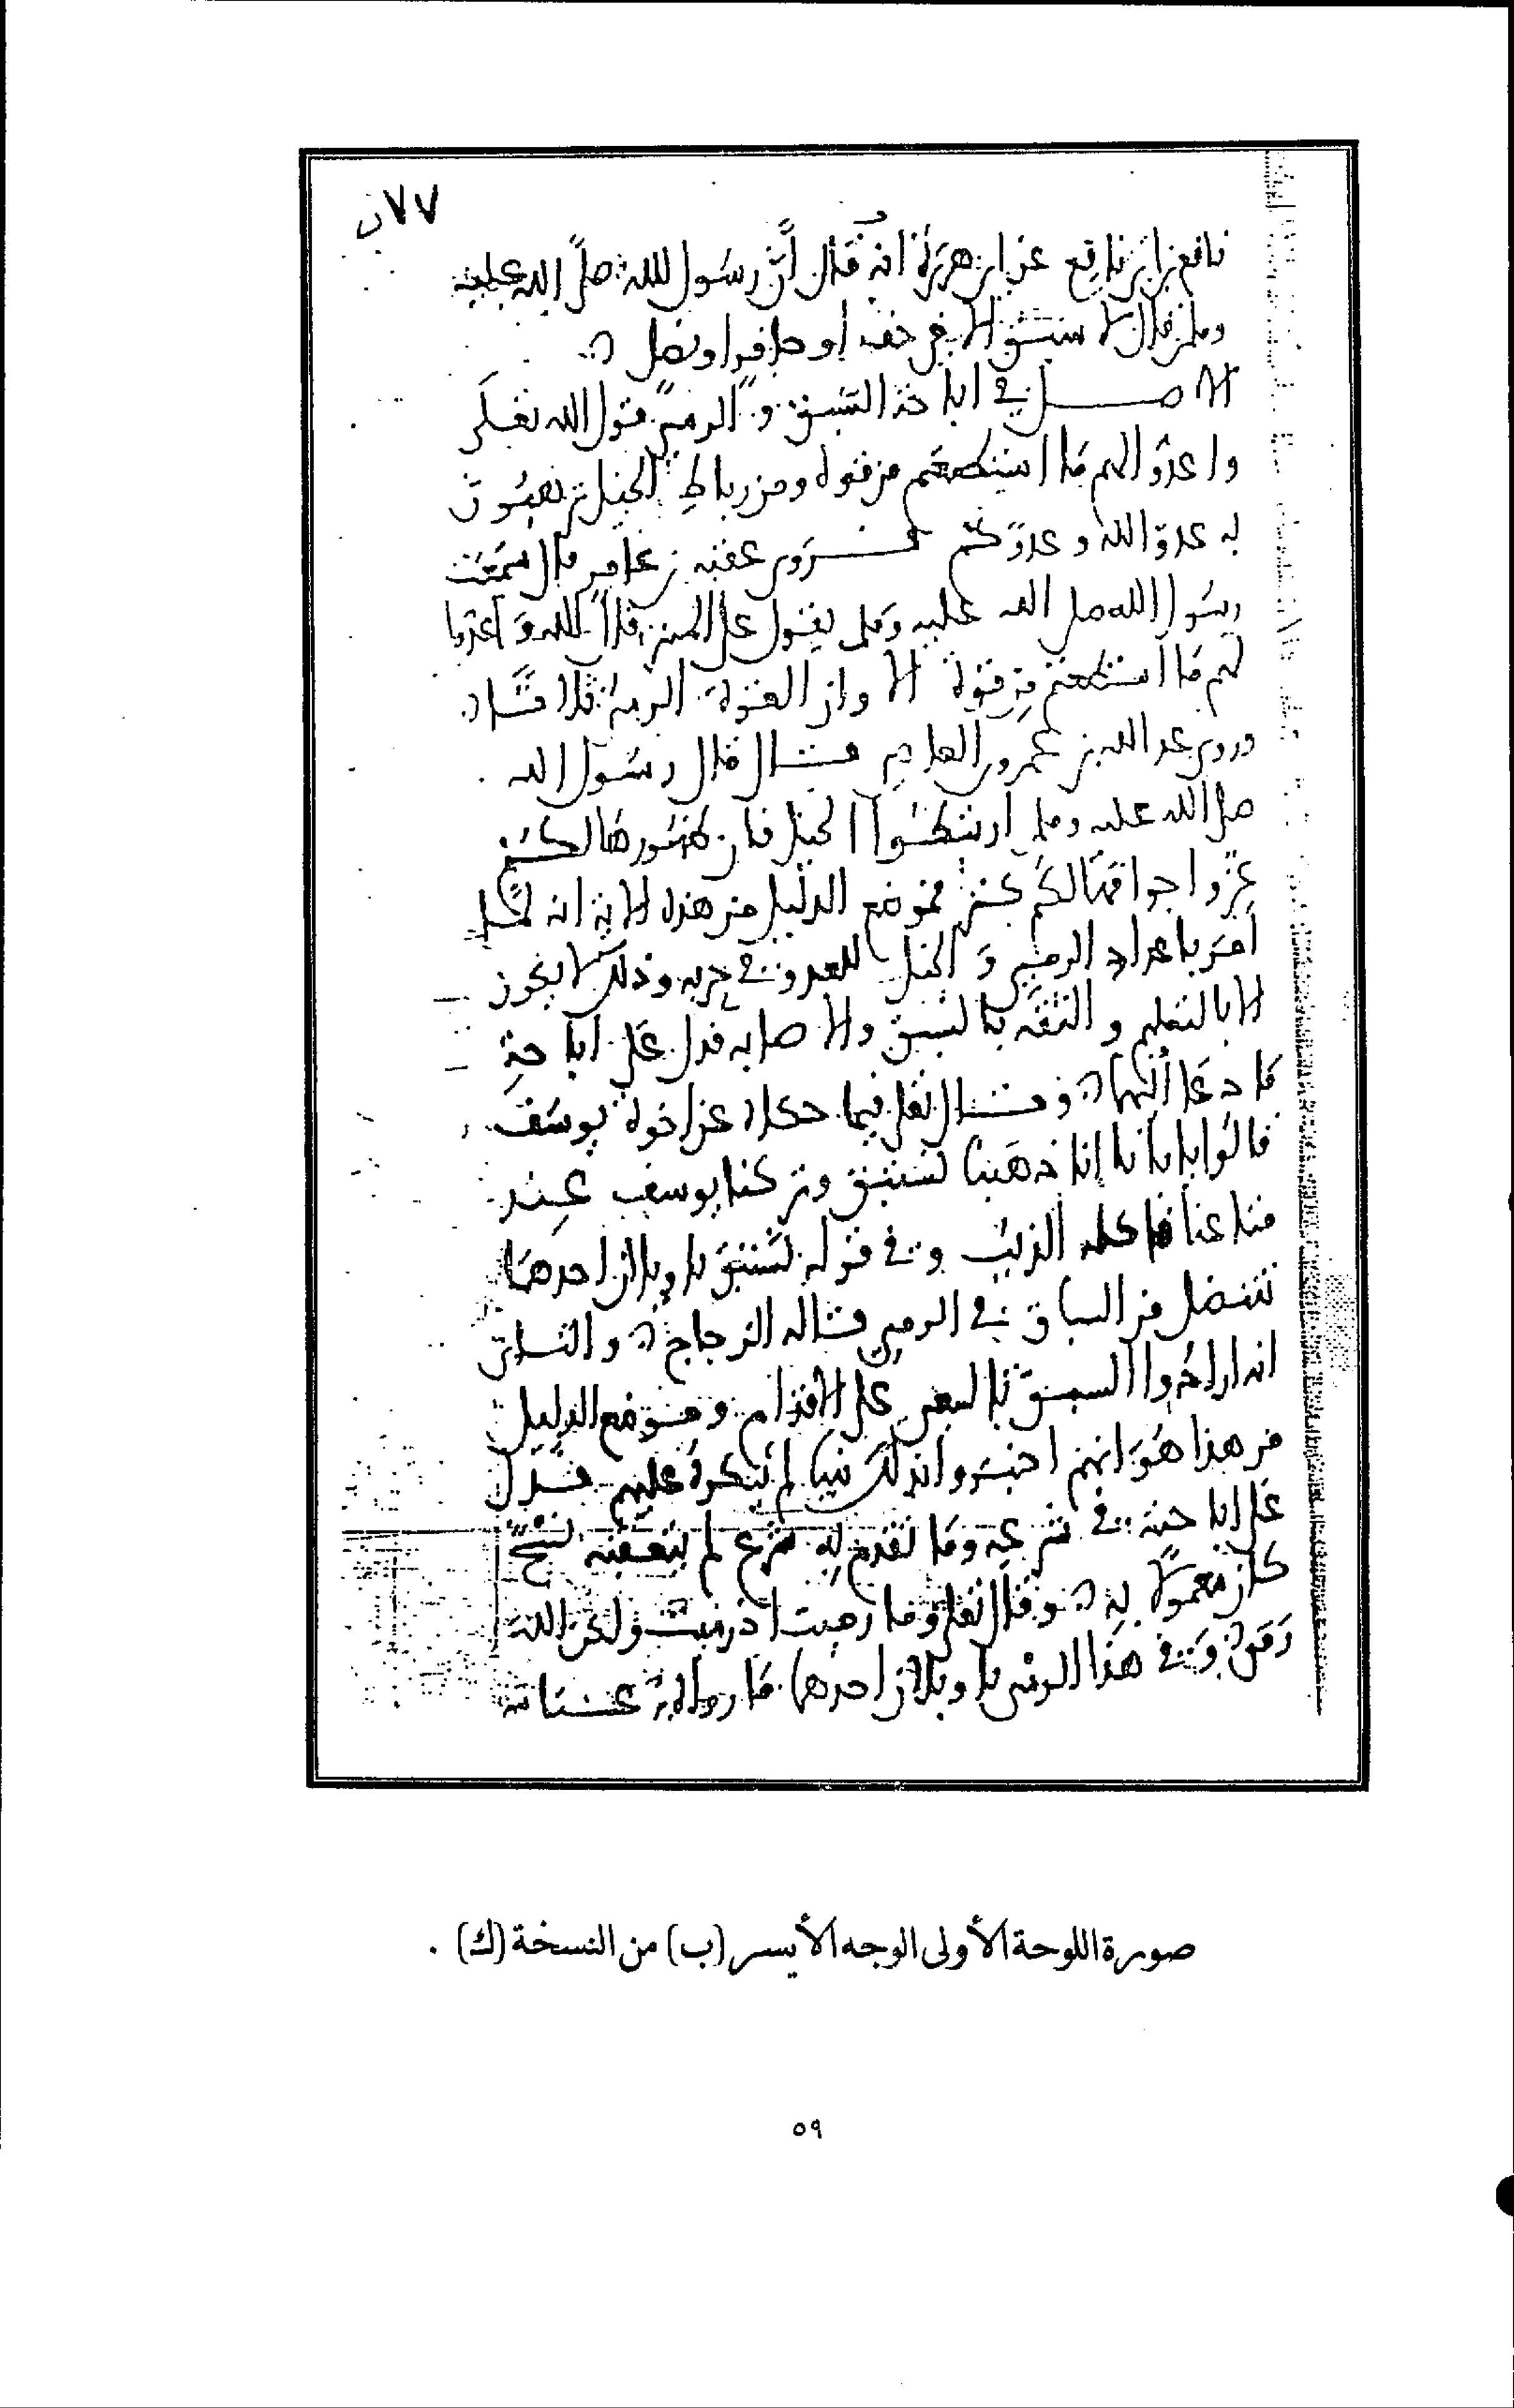 ٧٧ب
نافع بن ابي نافع عن ابي هريرة انه قال ان رسول الله صلى الله عليه
وسلم قال لا سبق الا في خف او حافر او نصل
الاصل في اباحة السبق والرمي قول الله تعلى
واعدوا لهم ما استطعتم من قوة ومن رباط الخيل ترهبون
به عدو الله وعدوكم فروى عقبه بن عامر قال سمعت
رسول الله صلى الله عليه وسلم يقول على المنبر قال الله واعدوا
لهم ما استطعتم من قوة الا وان القوة الرمي قالها ثلاثا
وروى عبد الله بن عمرو بن العاص قال قال رسول الله
صلى الله عليه وسلم ارتبطوا الخيل فان ظهورها لكم
عز واجوافها لكم كنز فموضع الدليل من هذه الاية انه لما
امر باعداد الرمي والخيل للعدو في حربه وذلك لا يجوز
الا بالتعلم والثقه بالسبق والاصابه فدل على اباحة
ما دعا اليهما وقال تعلى فيما حكاه عن اخوة يوسف
قالوا يا ابانا انا ذهبنا نستبق وتركنا يوسف عند
متاعنا فاكله الذيب وفي قوله نستبق تاويلان احدهما
ننتضل من السباق في الرمي قاله الزجاج والثاني
انه ارادوا السبق بالسعي على الاقدام وموضع الدليل
من هذا هو انهم اخبروا بذلك نبيا لم ينكره عليهم فدل
على اباحته في شرعه وما تقدم به شرع لم يتعقبه نسخ
كان معمولا به وقال تعلى وما رميت اذ رميت ولكن الله
رمى وفي هذا الرمي تاويلان احدهما ما رواه
صورة اللوحة الأولى الوجه الأيسر (ب) من النسخة (ك) .
٥٩